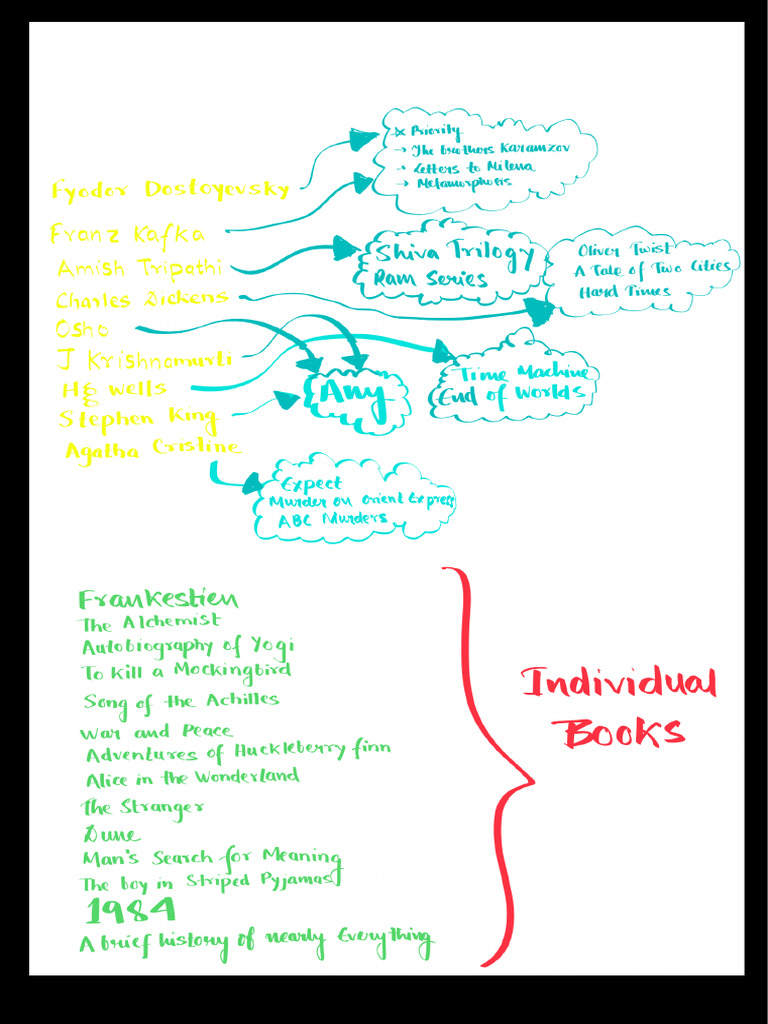 * Priority
→ The brothers Karamzov
→ Letters to Milena
→ Metamorphosis
Fyodor Dostoyevsky
Franz Kafka
Shiva Trilogy
Ram Series
Oliver Twist
A Tale of Two Cities
Hard Times
Amish Tripathi
Charles Dickens
Osho
J Krishnamurti
HG Wells
Stephen King
Agatha Cristine
Any
Time Machine
End of Worlds
Expect
Murder on Orient Express
ABC Murders
Frankestien
The Alchemist
Autobiography of Yogi
To Kill a Mockingbird
Song of the Achilles
War and Peace
Adventures of Huckleberry finn
Alice in the Wonderland
The Stranger
Dune
Man's Search for Meaning
The boy in Striped Pyjamas
1984
A brief history of nearly Everything
Individual
Books